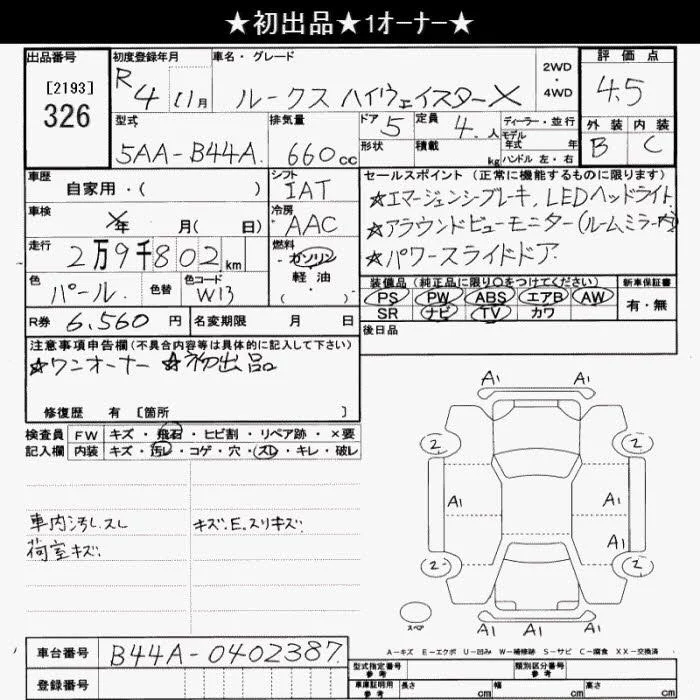 ★初出品★1オーナー★
出品番号 初度登録年月 車名・グレード 評価点
[2193]
326
R4 11月 ルークス ハイウェイスターX 2WD・4WD 4.5
型式 排気量 ドア 5 定員 4.人 ディーラー・並行 外装 内装
5AA-B44A. 660cc 形状 積載 kg モデル年式 年 B C
ハンドル 左・右
車歴 シフト セールスポイント(正常に機能するものに限ります)
自家用・( ) IAT ☆エマージェンシーブレーキ, LEDヘッドライト
車検 年 月( 日) 冷房 AAC ☆アラウンドビューモニター(ルームミラー内)
走行 2万9千802km 燃料 ガソリン ☆パワースライドドア
軽油
( )
色 パール. 色替 色コード W13 装備品(純正品に限り○をつけてください) 新車保証書
PS PW ABS エアB AW 有・無
SR ナビ TV カワ
R券 6,560円 名変期限 月 日 後日品
注意事項申告欄(不具合内容等は具体的に記入して下さい)
☆ワンオーナー ☆初出品
修復歴 有 [箇所 ]
検査員 FW キズ・飛石・ヒビ割・リペア跡・×要
記入欄 内装 キズ・汚レ・コゲ・穴・スレ・キレ・破レ
車内汚レ.スレ キズ.E.スリキズ.
荷室キズ.
A1 A1
2 2
A1 A1
A1
2 2
A1 A1 A1
スペア
A-キズ E-エクボ U-凹み W-補修跡 S-サビ C-腐食 XX-交換済
車台番号 B44A-0402387.
登録番号
型式指定番号 参考 類別区分番号 参考
車庫証明用 参考 長さ cm 幅 cm 高さ cm